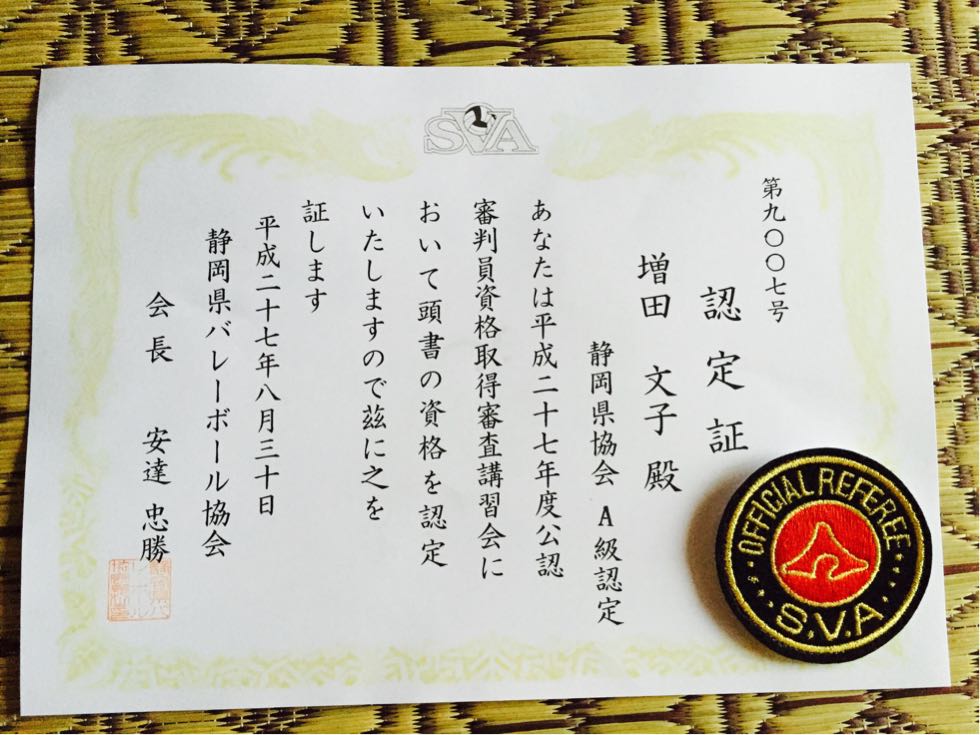 SVA
第九〇〇七号
認定証
増田 文子 殿
静岡県協会 A級認定
あなたは平成二十七年度公認
審判員資格取得審査講習会に
おいて頭書の資格を認定
いたしますので茲に之を
証します
平成二十七年八月三十日
静岡県バレーボール協会
会長 安達 忠勝
OFFICIAL REFEREE
S.V.A